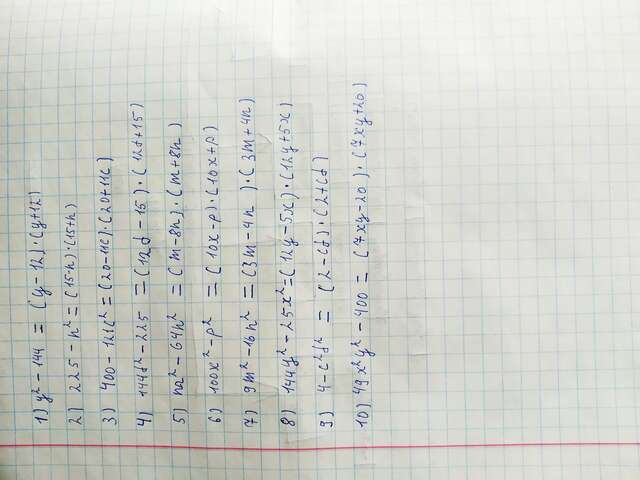 1) y² - 144 = (y - 12)·(y+12)
2) 225 - n² = (15-n)·(15+n)
3) 400 - 121c² = (20-11c)·(20+11c)
4) 144d² - 225 = (12d - 15)·(12d+15)
5) m² - 64n² = (m-8n)·(m+8n)
6) 100x² - p² = (10x-p)·(10x+p)
7) 9m² - 16n² = (3m-4n)·(3m+4n)
8) 144y² - 25x² = (12y-5x)·(12y+5x)
9) 4-c²d² = (2-cd)·(2+cd)
10) 49x²y² - 400 = (7xy-20)·(7xy+20)